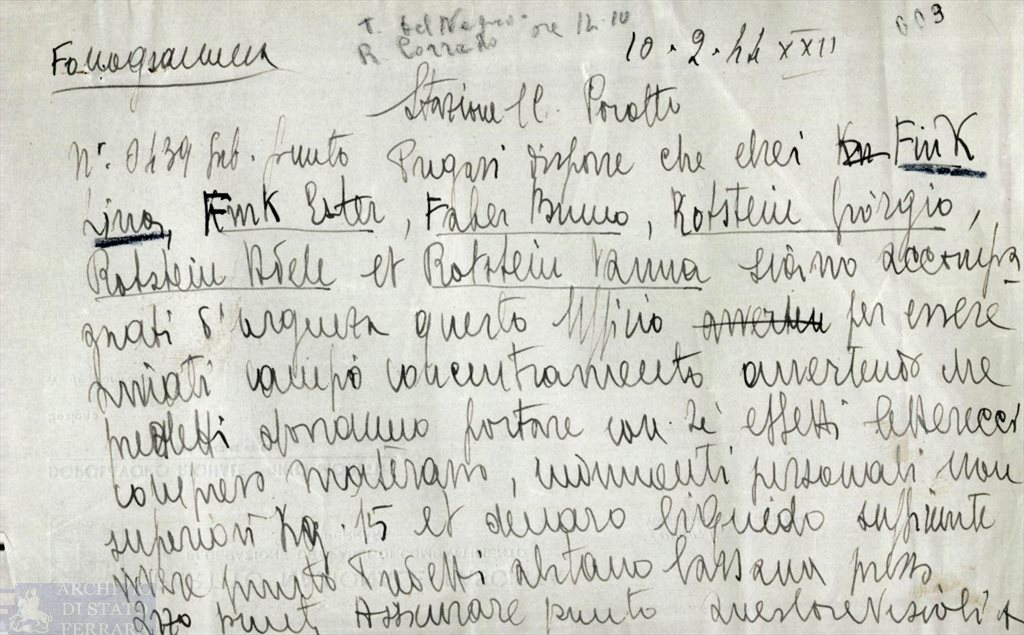 T. Del Negro ore 12.10
R. Corrado
003
Fonogramma
10.2.44 XXII
Stazione CC. Porotto
N°. 0439 Gab. punto Pregasi disporre che ebrei Fink
Lina, Fink Ester, Faber Bruno, Rotstein Giorgio,
Rotstein Adele et Rotstein Vanna siano accompa
gnati d'urgenza questo Ufficio per essere
inviati campo concentramento avvertendo che
predetti dovranno portare con sé effetti letterecci
compreso materasso, indumenti personali non
superiori Kg. 15 et denaro liquido sufficiente
punto Predetti abitano Cassana presso
punto Assicurare punto Questore Visioli
ARCHIVIO
DI STATO
FERRARA